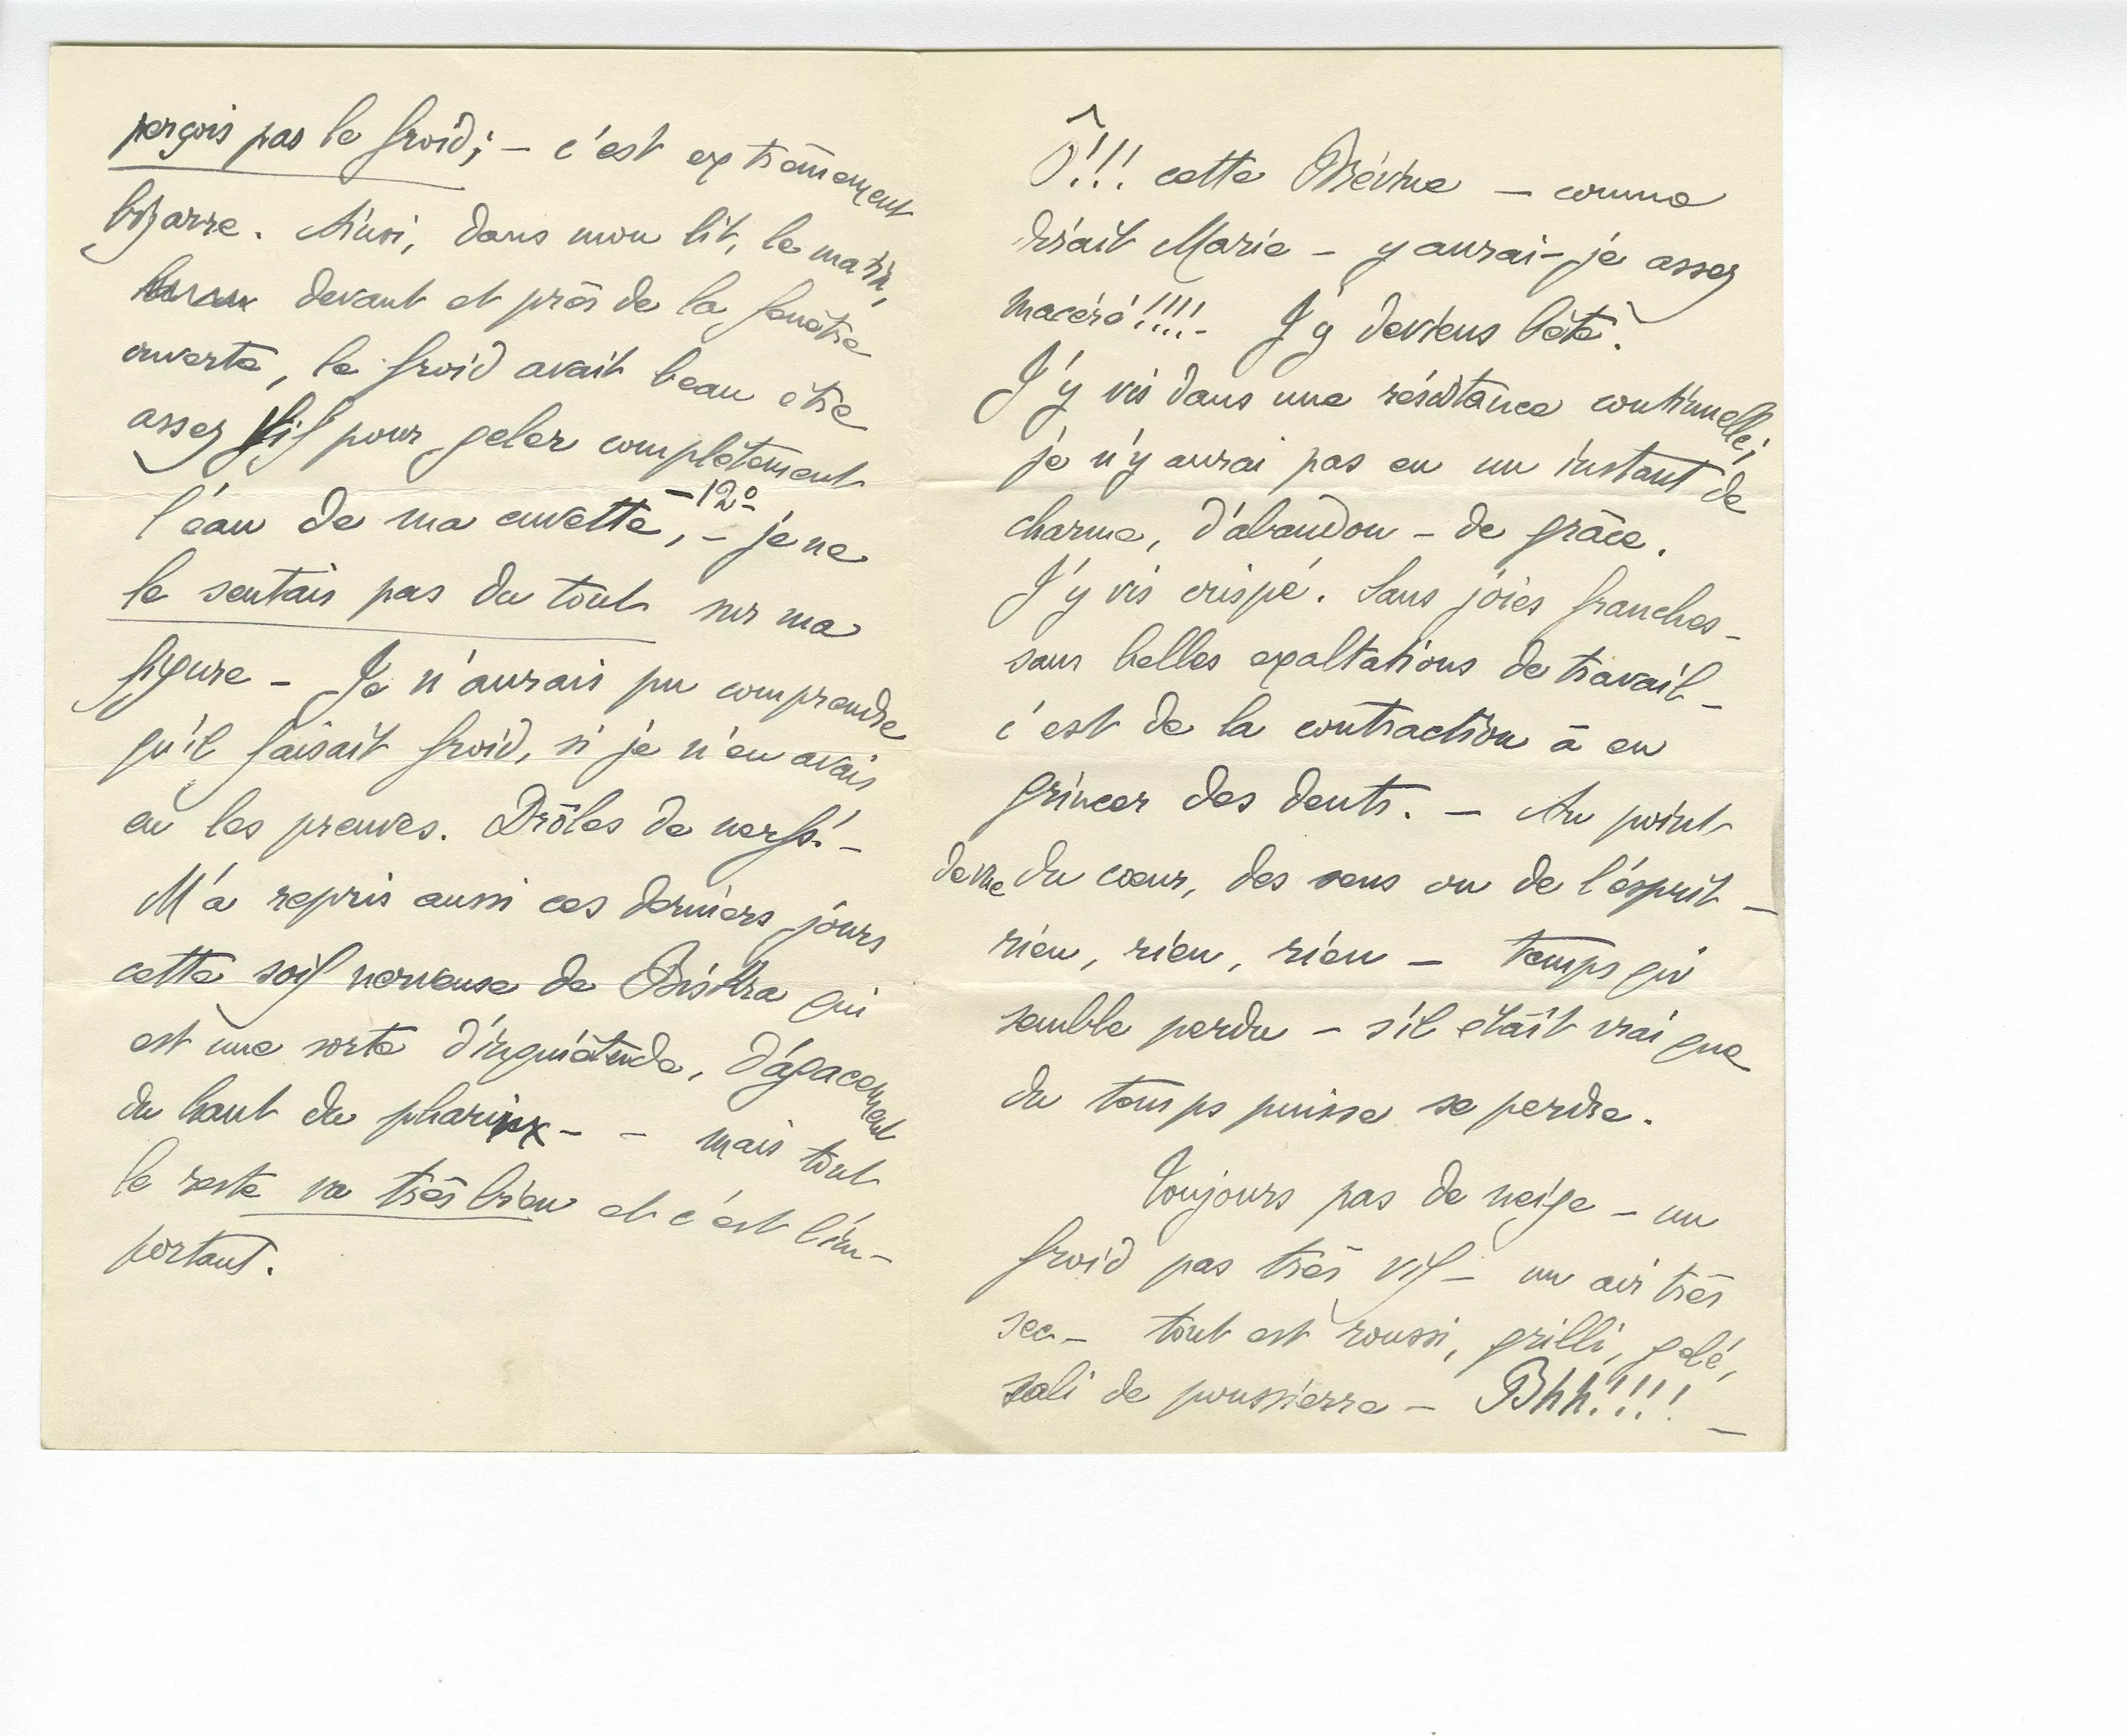 perçois pas le froid; – c'est extrêmement
bizarre. Ainsi, dans mon lit, le matin,
devant et près de la fenêtre
ouverte, le froid avait beau être
assez vif pour geler complètement
l'eau de ma cuvette, –12° – je ne
le sentais pas du tout sur ma
figure – Je n'aurais pu comprendre
qu'il faisait froid, si je n'en avais
eu les preuves. Drôles de nerfs! –
M'a repris aussi ces derniers jours
cette soif nerveuse de Biskra qui
est une sorte d'inquiétude, d'agacement
du haut du pharinx – – mais tout
le reste va très bien et c'est l'im-
portant.
Ô!!! cette Brévine – comme
dirait Marie – y aurai-je assez
macéré!!!!- J'y deviens bête.
J'y vis dans une résistance continuelle;
je n'y aurai pas eu un instant de
charme, d'abandon – de grâce.
J'y vis crispé. Sans joies franches –
sans belles exaltations de travail –
c'est de la contraction à en
grincer des dents. – Au point
de vue du cœur, des sens ou de l'ésprit –
rien, rien, rien – temps qui
semble perdu – s'il était vrai que
du temps puisse se perdre.
Toujours pas de neige – un
froid pas très vif – un air très
sec – tout est roussi, grillé, gelé,
sali de poussierre – Bhh!!!! –